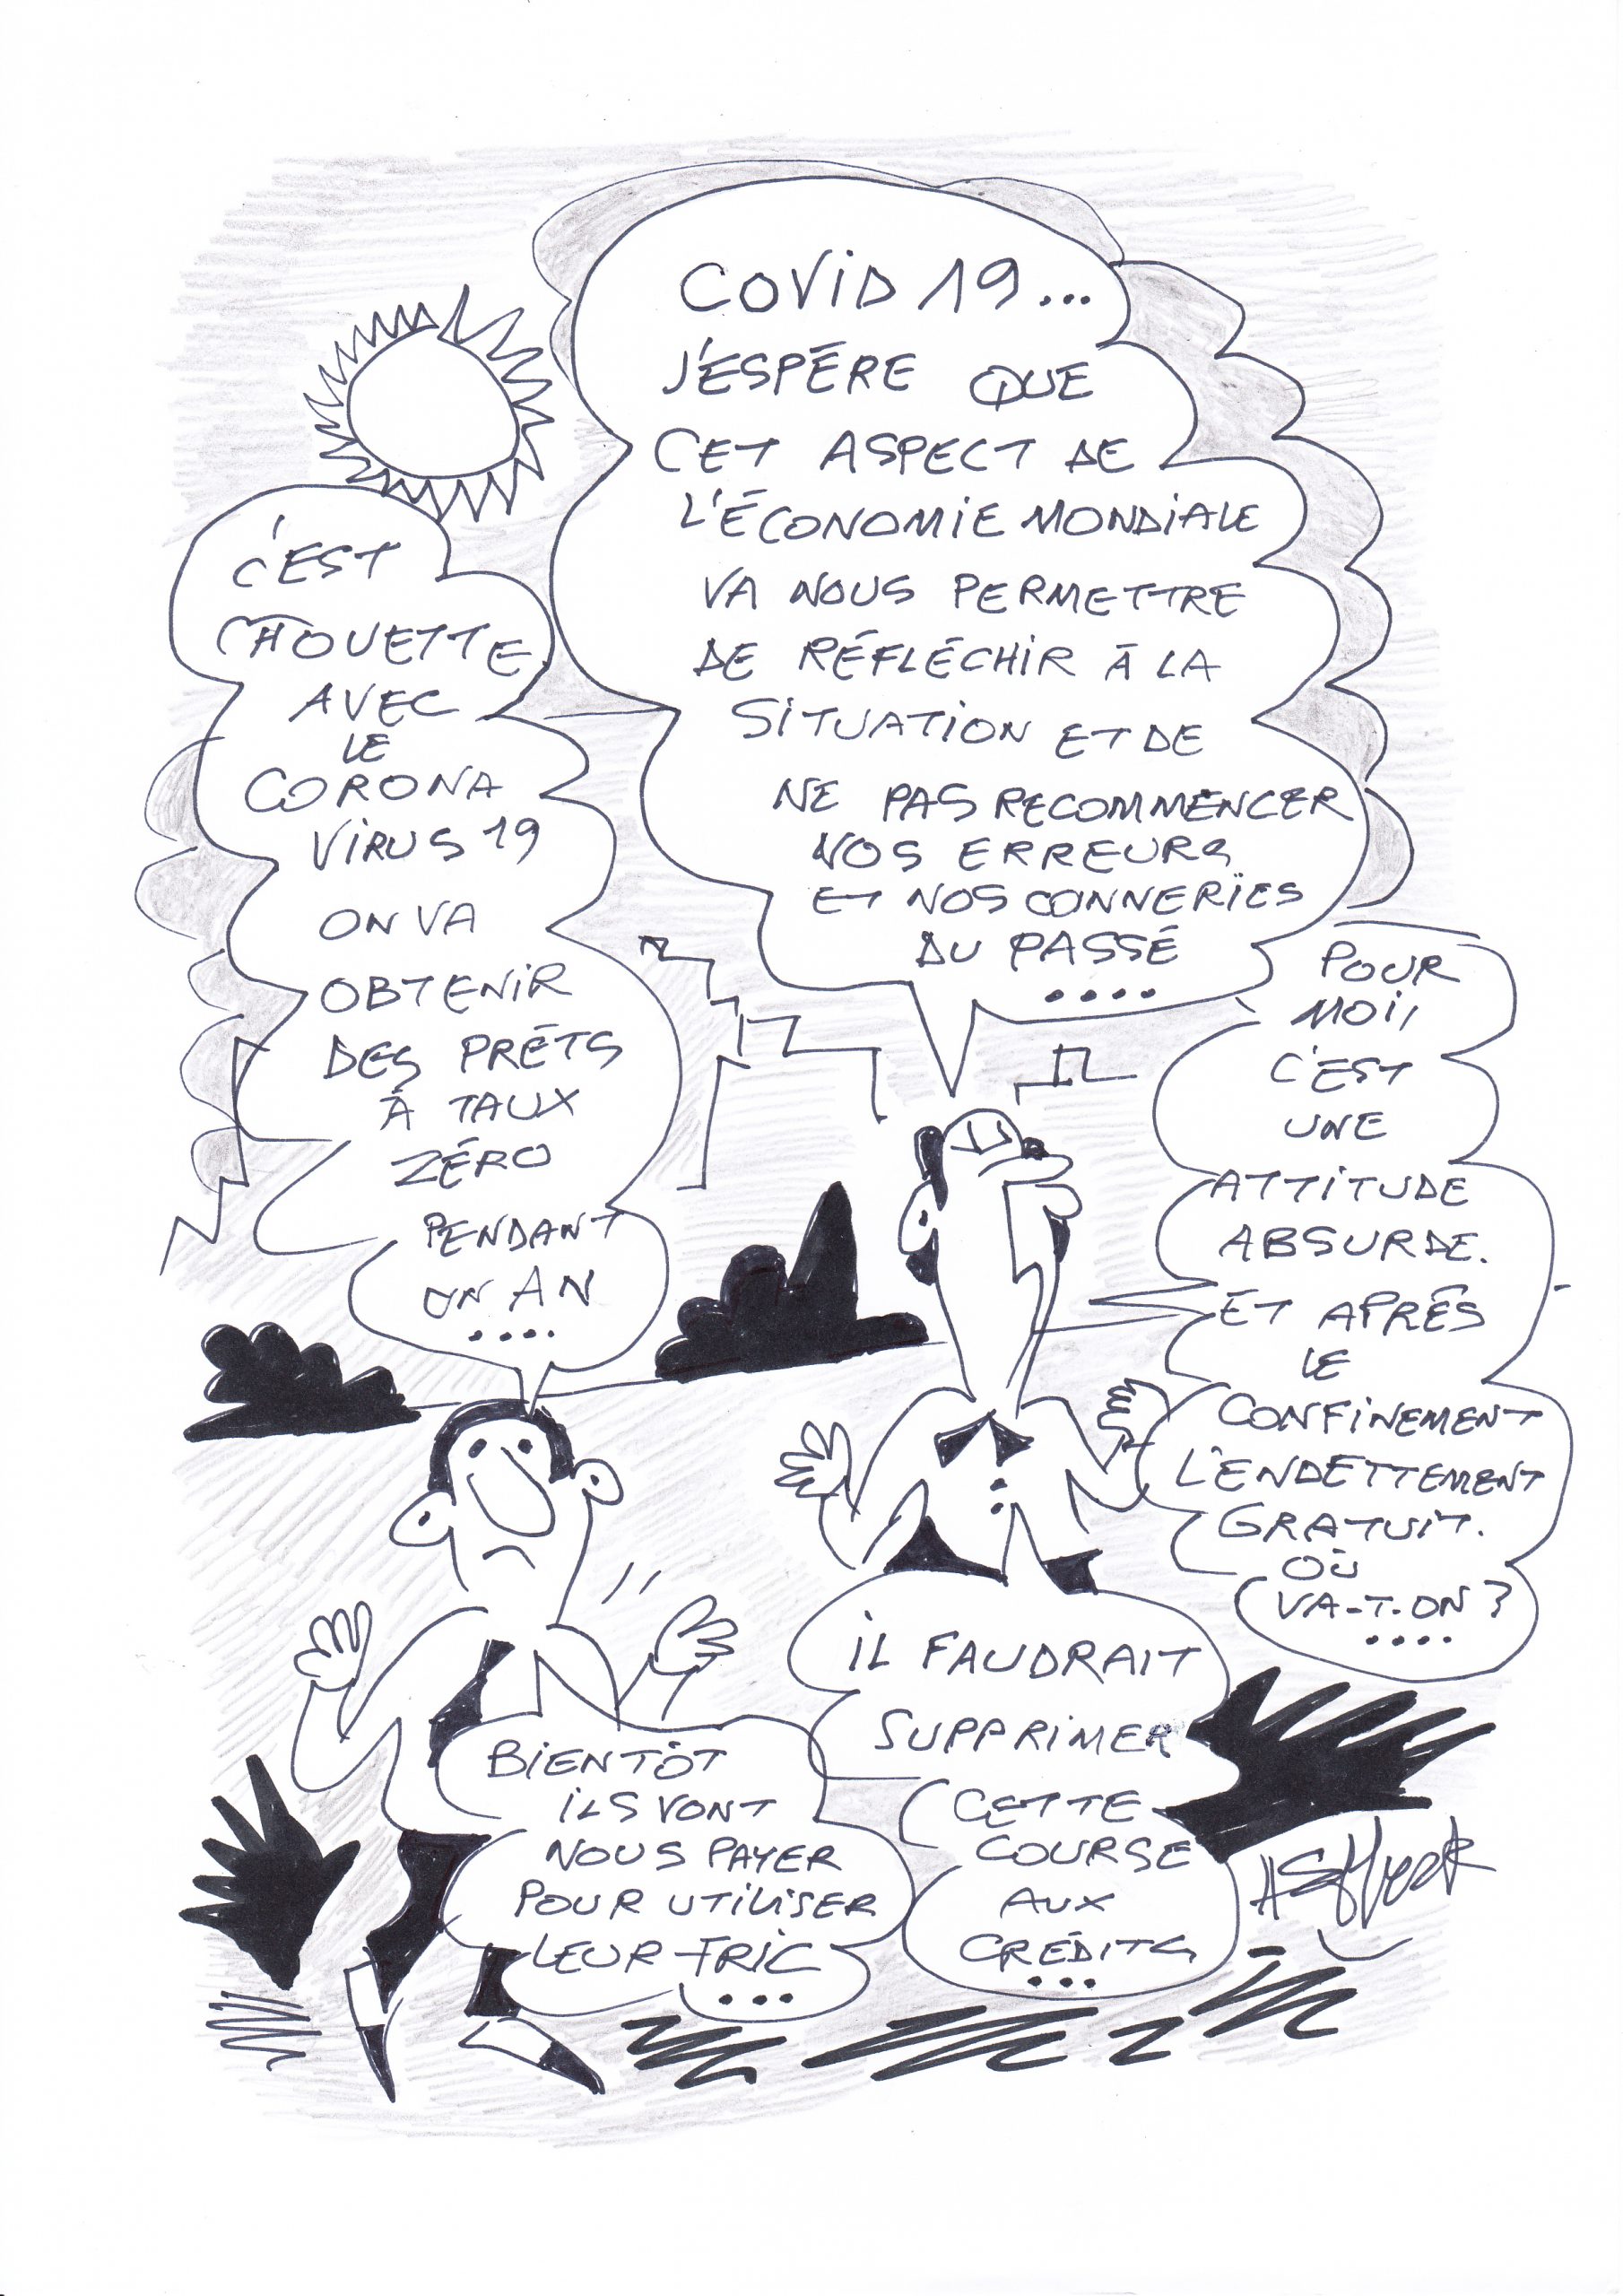 COVID 19...
J'ESPÈRE QUE
CET ASPECT DE
L'ÉCONOMIE MONDIALE
VA NOUS PERMETTRE
DE RÉFLÉCHIR À LA
SITUATION ET DE
NE PAS RECOMMENCER
NOS ERREURS
ET NOS CONNERÏES
DU PASSÉ
....
C'EST
CHOUETTE
AVEC
LE
CORONA
VIRUS 19
ON VA
OBTENIR
DES PRÊTS
À TAUX
ZÉRO
PENDANT
UN AN
....
POUR
MOI,
C'EST
UNE
ATTITUDE
ABSURDE.
ET APRÈS
LE
CONFINEMENT
L'ENDETTEMENT
GRATUIT.
OÙ
VA-T-ON ?
....
BIENTÔT
ILS VONT
NOUS PAYER
POUR UTILISER
LEUR FRIC
...
IL FAUDRAIT
SUPPRIMER
CETTE
COURSE
AUX
CRÉDITS
...